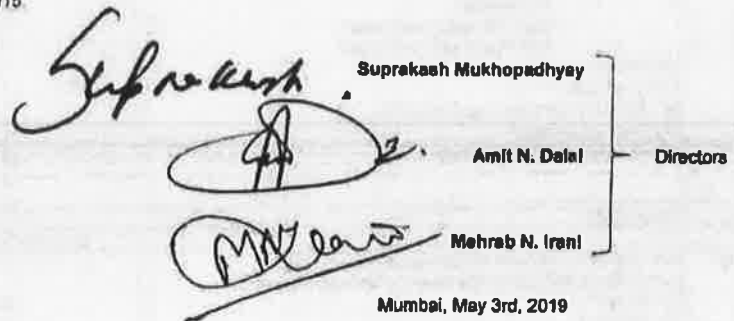 Suprakash
Suprakash Mukhopadhyay
Amit N. Dalal
Directors
Mehrab N. Irani
Mumbai, May 3rd, 2019